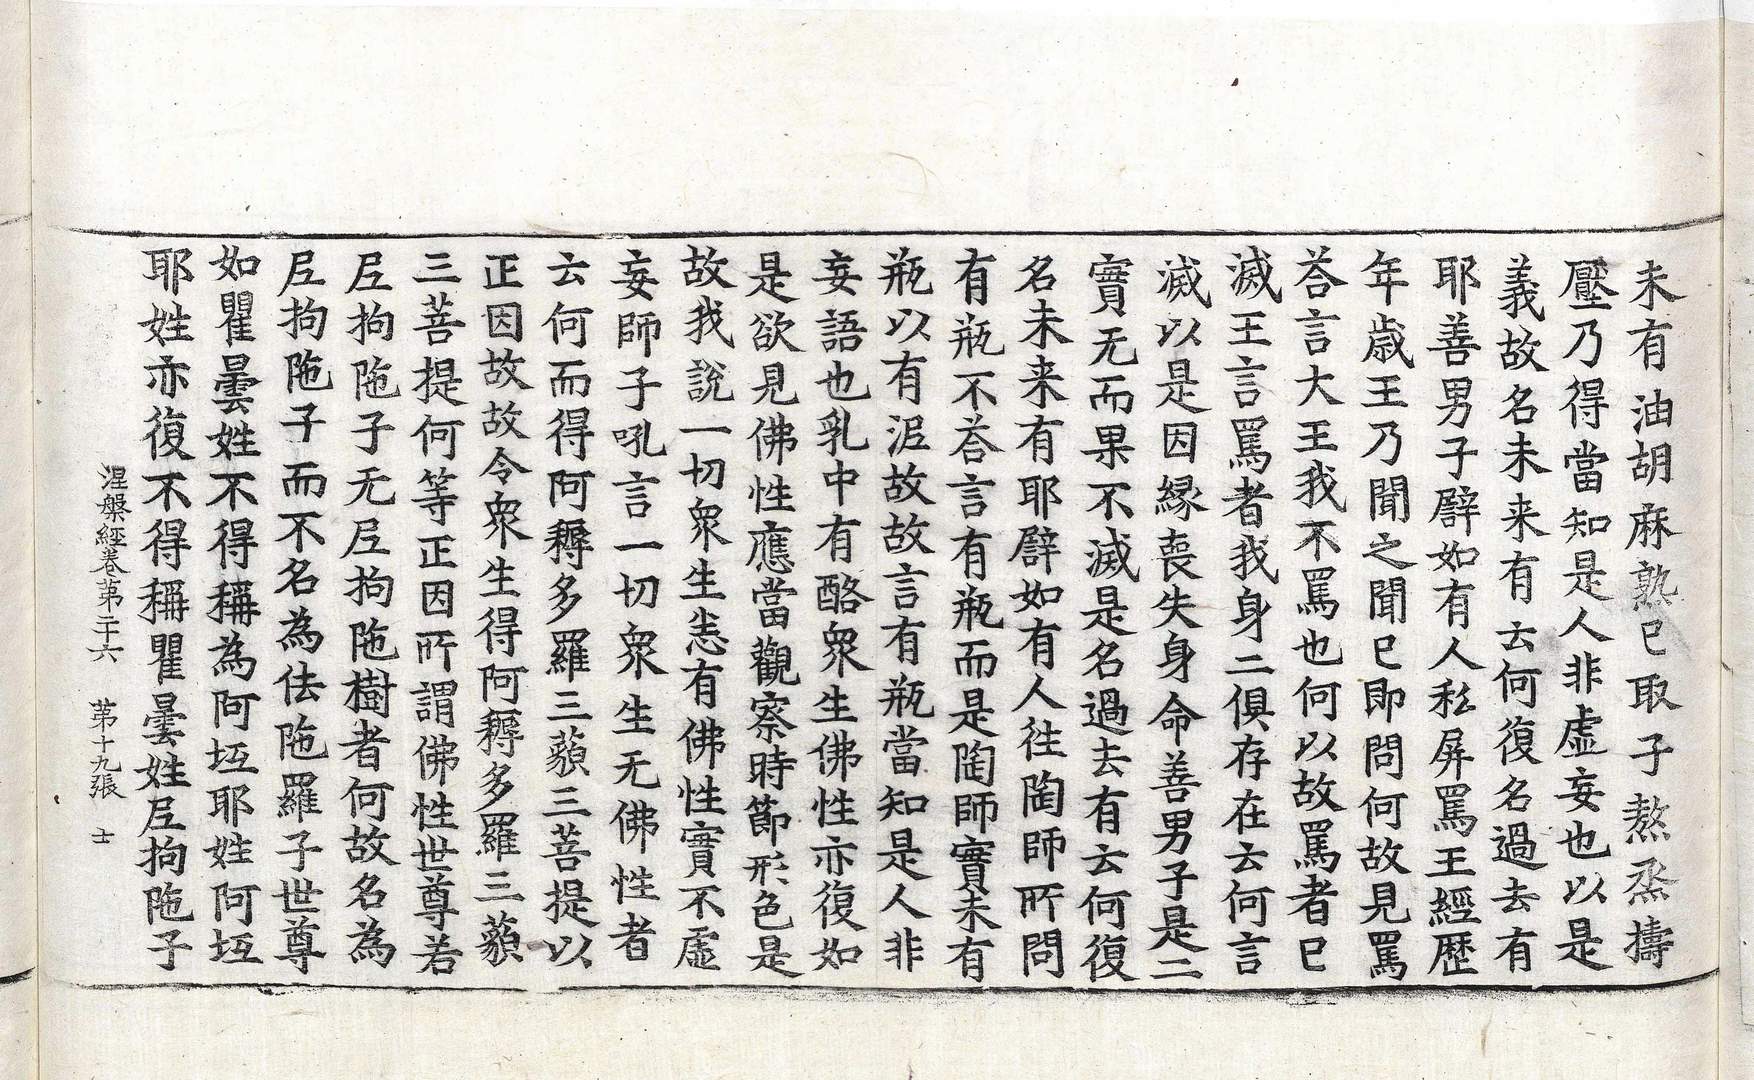 未有油胡麻熟已取子熬烝擣
壓乃得當知是人非虛妄也以是
義故名未来有云何復名過去有
耶善男子譬如有人私屏罵王經歷
年歲王乃聞之聞已即問何故見罵
荅言大王我不罵也何以故罵者已
滅王言罵者我身二俱存在云何言
滅以是因緣喪失身命善男子是二
實无而果不滅是名過去有云何復
名未来有耶譬如有人往陶師所問
有瓶不荅言有瓶而是陶師實未有
瓶以有泥故故言有瓶當知是人非
妄語也乳中有酪衆生佛性亦復如
是欲見佛性應當觀察時節形色是
故我說一切衆生悉有佛性實不虛
妄師子吼言一切衆生无佛性者
云何而得阿耨多羅三藐三菩提以
正因故故令衆生得阿耨多羅三藐
三菩提何等正因所謂佛性世尊若
尼拘陁子无尼拘陁樹者何故名為
尼拘陁子而不名為佉陁羅子世尊
如瞿曇姓不得稱為阿坻耶姓阿坻
耶姓亦復不得稱瞿曇姓尼拘陁子
涅槃經卷第二十六　第十九張　士